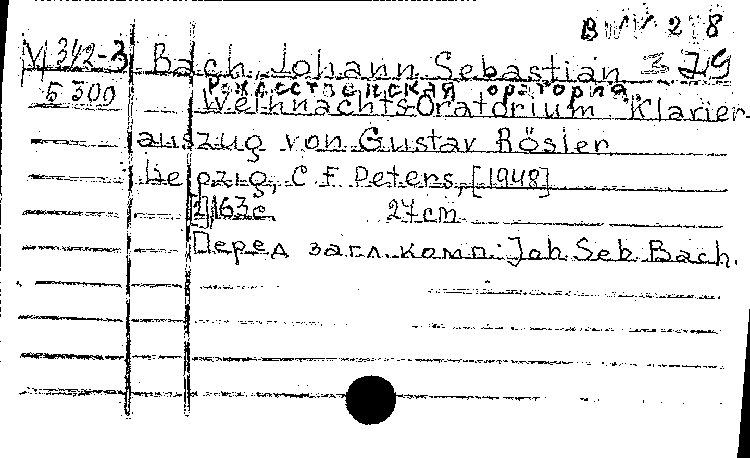 BWV 248
М 342-3 Bach, Johann Sebastian 379
5300 Рождественская оратория
Weihnachts-Oratorium Klavier-
auszug von Gustav Rösler
Leipzig, C F Peters, [1948]
[2]163c. 27cm.
Перед загл. комп: Joh. Seb. Bach.